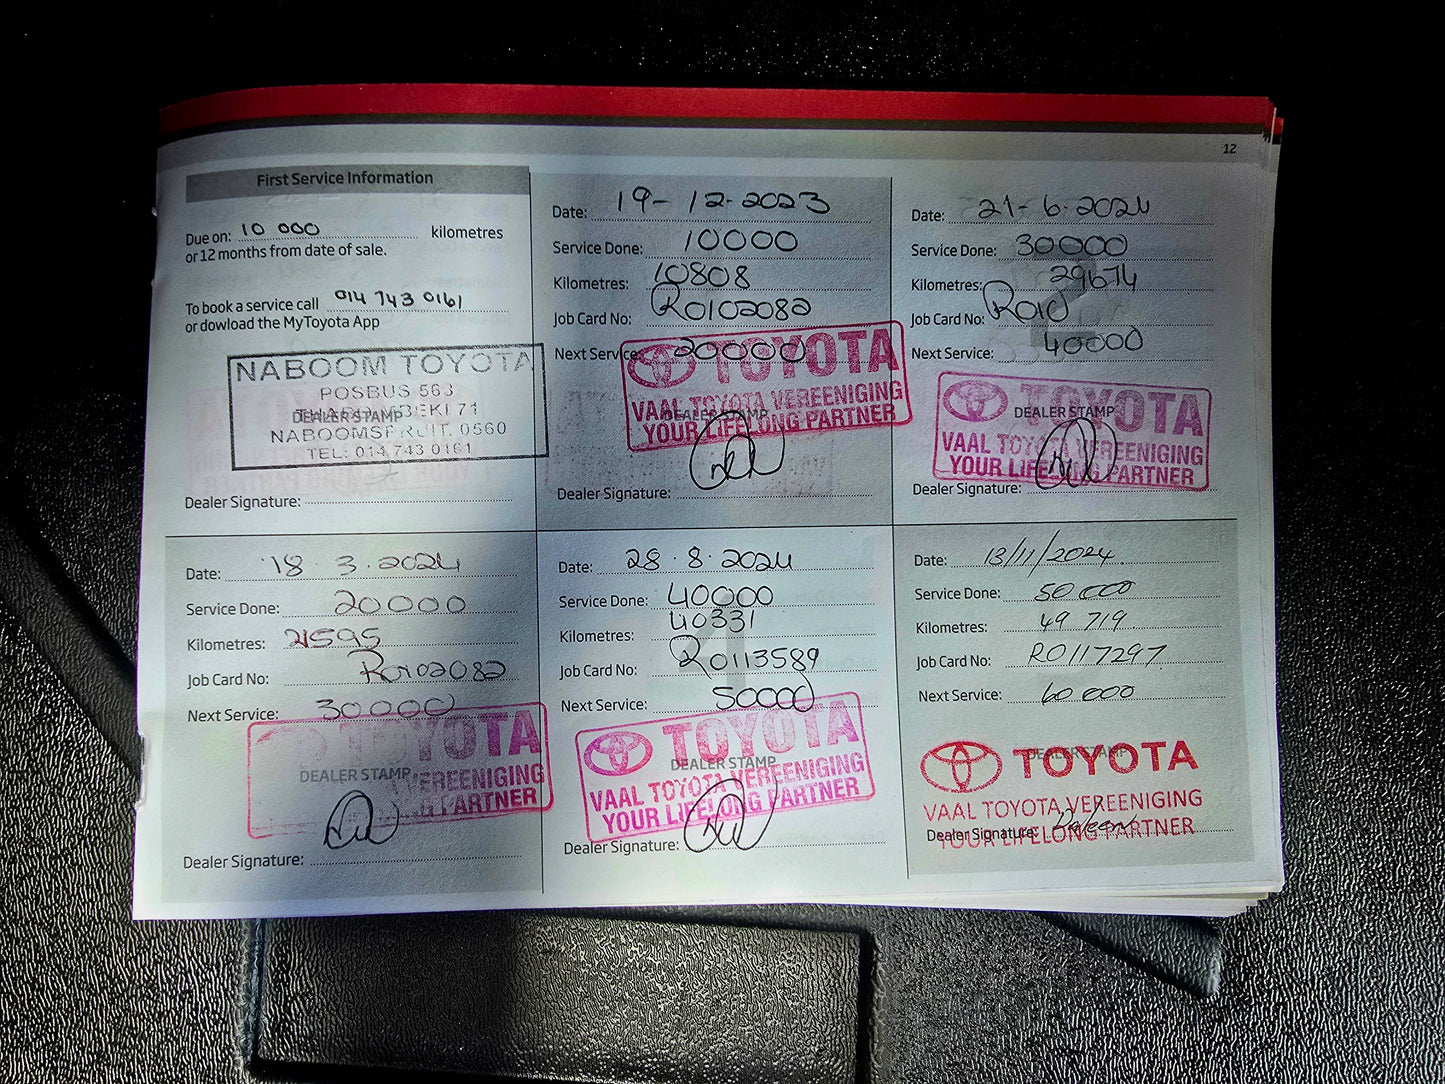 12
First Service Information
Due on: 10 000 kilometres
or 12 months from date of sale.
To book a service call 014 743 0161
or dowload the MyToyota App
NABOOM TOYOTA
POSBUS 563
DEALER STAMP
71
NABOOMSPRUIT, 0560
TEL: 014 743 0161
Dealer Signature:
Date: 19-12-2023
Service Done: 10000
Kilometres: 10808
Job Card No: R0102082
Next Service: 20000
TOYOTA
DEALER STAMP
VAAL TOYOTA VEREENIGING
YOUR LIFELONG PARTNER
Dealer Signature:
Date: 21-6-2024
Service Done: 30000
Kilometres: 29674
Job Card No: R010
Next Service: 40000
TOYOTA
DEALER STAMP
VAAL TOYOTA VEREENIGING
YOUR LIFELONG PARTNER
Dealer Signature:
Date: 18.3.2024
Service Done: 20000
Kilometres: 21595
Job Card No: R0102082
Next Service: 30000
TOYOTA
DEALER STAMP
VEREENIGING
PARTNER
Dealer Signature:
Date: 28.8.2024
Service Done: 40000
Kilometres: 40331
Job Card No: R0113589
Next Service: 50000
TOYOTA
DEALER STAMP
VAAL TOYOTA VEREENIGING
YOUR LIFELONG PARTNER
Dealer Signature:
Date: 13/11/2024
Service Done: 50 000
Kilometres: 49 719
Job Card No: R0117297
Next Service: 60 000
TOYOTA
VAAL TOYOTA VEREENIGING
Dealer Signature:
YOUR LIFELONG PARTNER